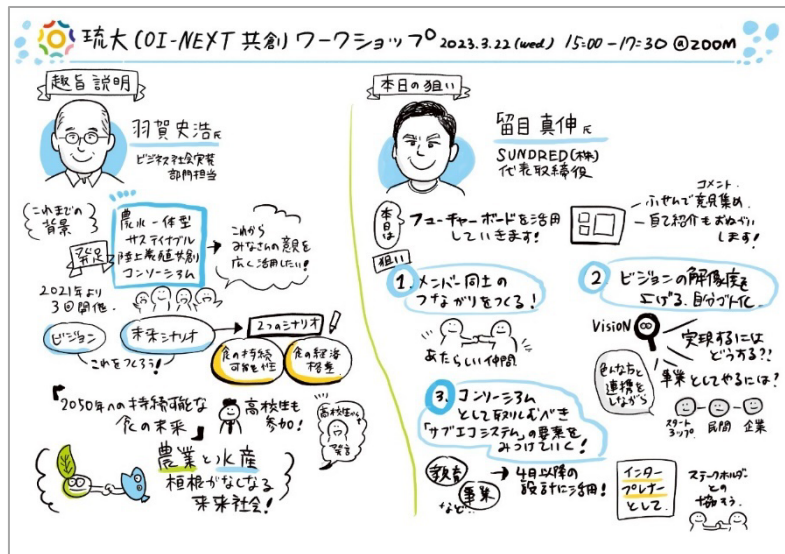 琉大 COI-NEXT 共創ワークショップ 2023.3.22(wed) 15:00-17:30 @ZOOM
趣旨説明
羽賀史浩氏
ビジネス社会実装
部門担当
これまでの
背景
発足
農水一体型
サステイナブル
陸上養殖共創
コンソーシアム
これから
みなさんの意見を
広く活用したい!
2021年より
3回開催.
ビジョン
未来シナリオ
これをつくろう!
2つのシナリオ
食の持続
可能性
食の経済
格差
「2050年への持続可能な
食の未来」
高校生も
参加!
高校生から
発言
農業と水産
垣根がなくなる
未来社会!
本日の狙い
留目 真伸氏
SUNDRED(株)
代表取締役
本日は
フューチャーボードを活用
していきます!
コメント
ふせんで意見集め
自己紹介もおねがい
します!
狙い
1. メンバー同士の
つながりをつくる!
あたらしい仲間
2. ビジョンの解像度を
上げる.自分ゴト化
VISION
実現するには
どうする?!
事業としてやるには?
色んな方と
連携を
しながら
スタートアップ
民間
企業
3. コンソーシアム
として取りくむべき
「サブエコシステム」の要素を
みつけていく!
教育
事業
など
4月以降の
設計に活用!
インター
プレナー
として
ステークホルダー
との
協力